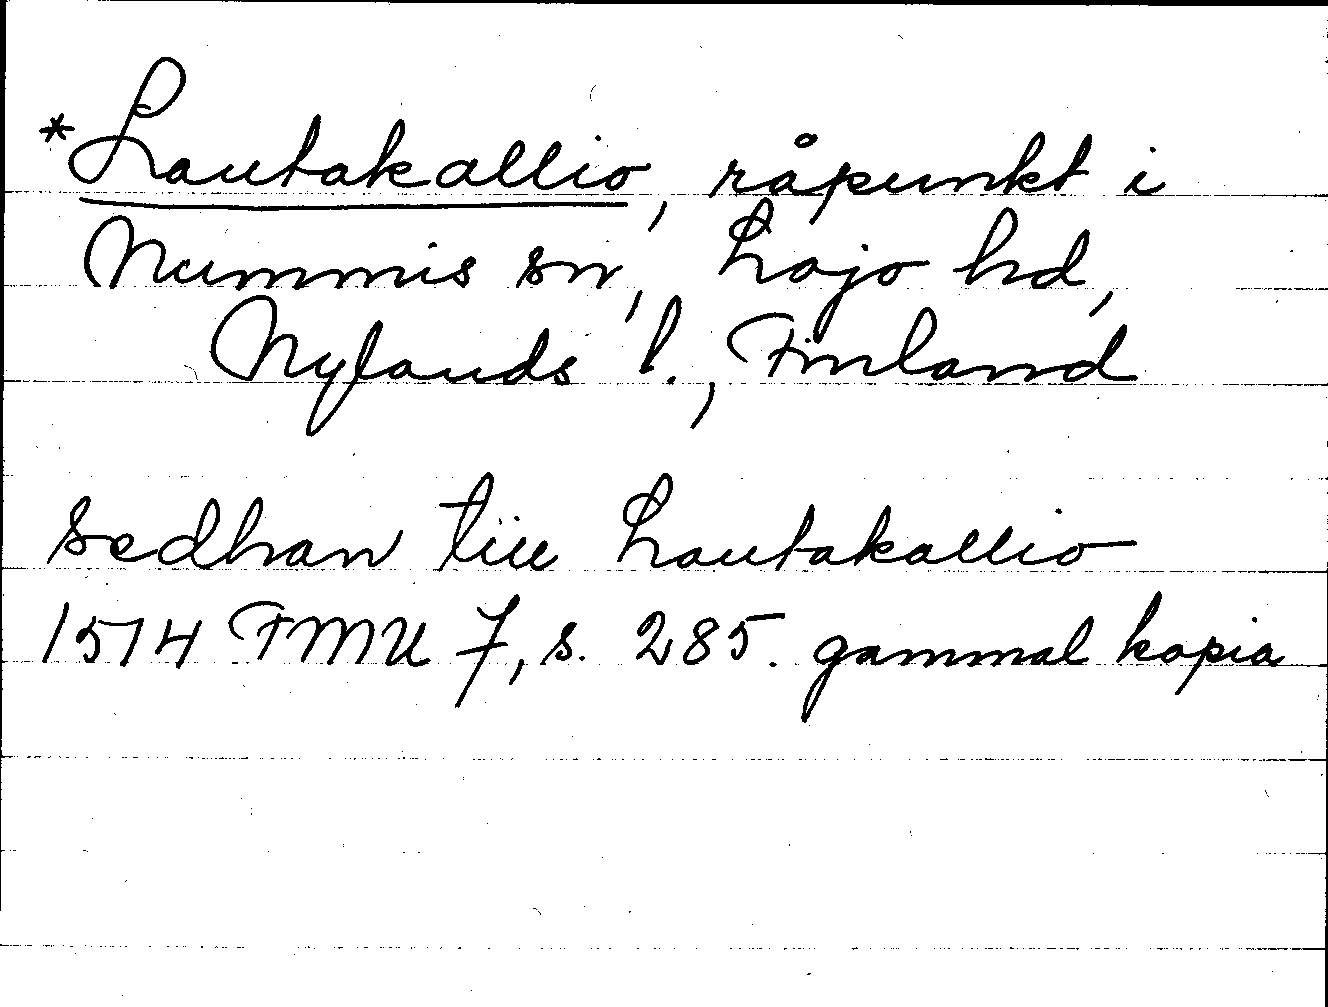 *Lautakallio, råpunkt i
Nummis sn, Lojo hd,
Nylands l., Finland
sedhan till Lautakallio
1514 FMU 7, s. 285. gammal kopia